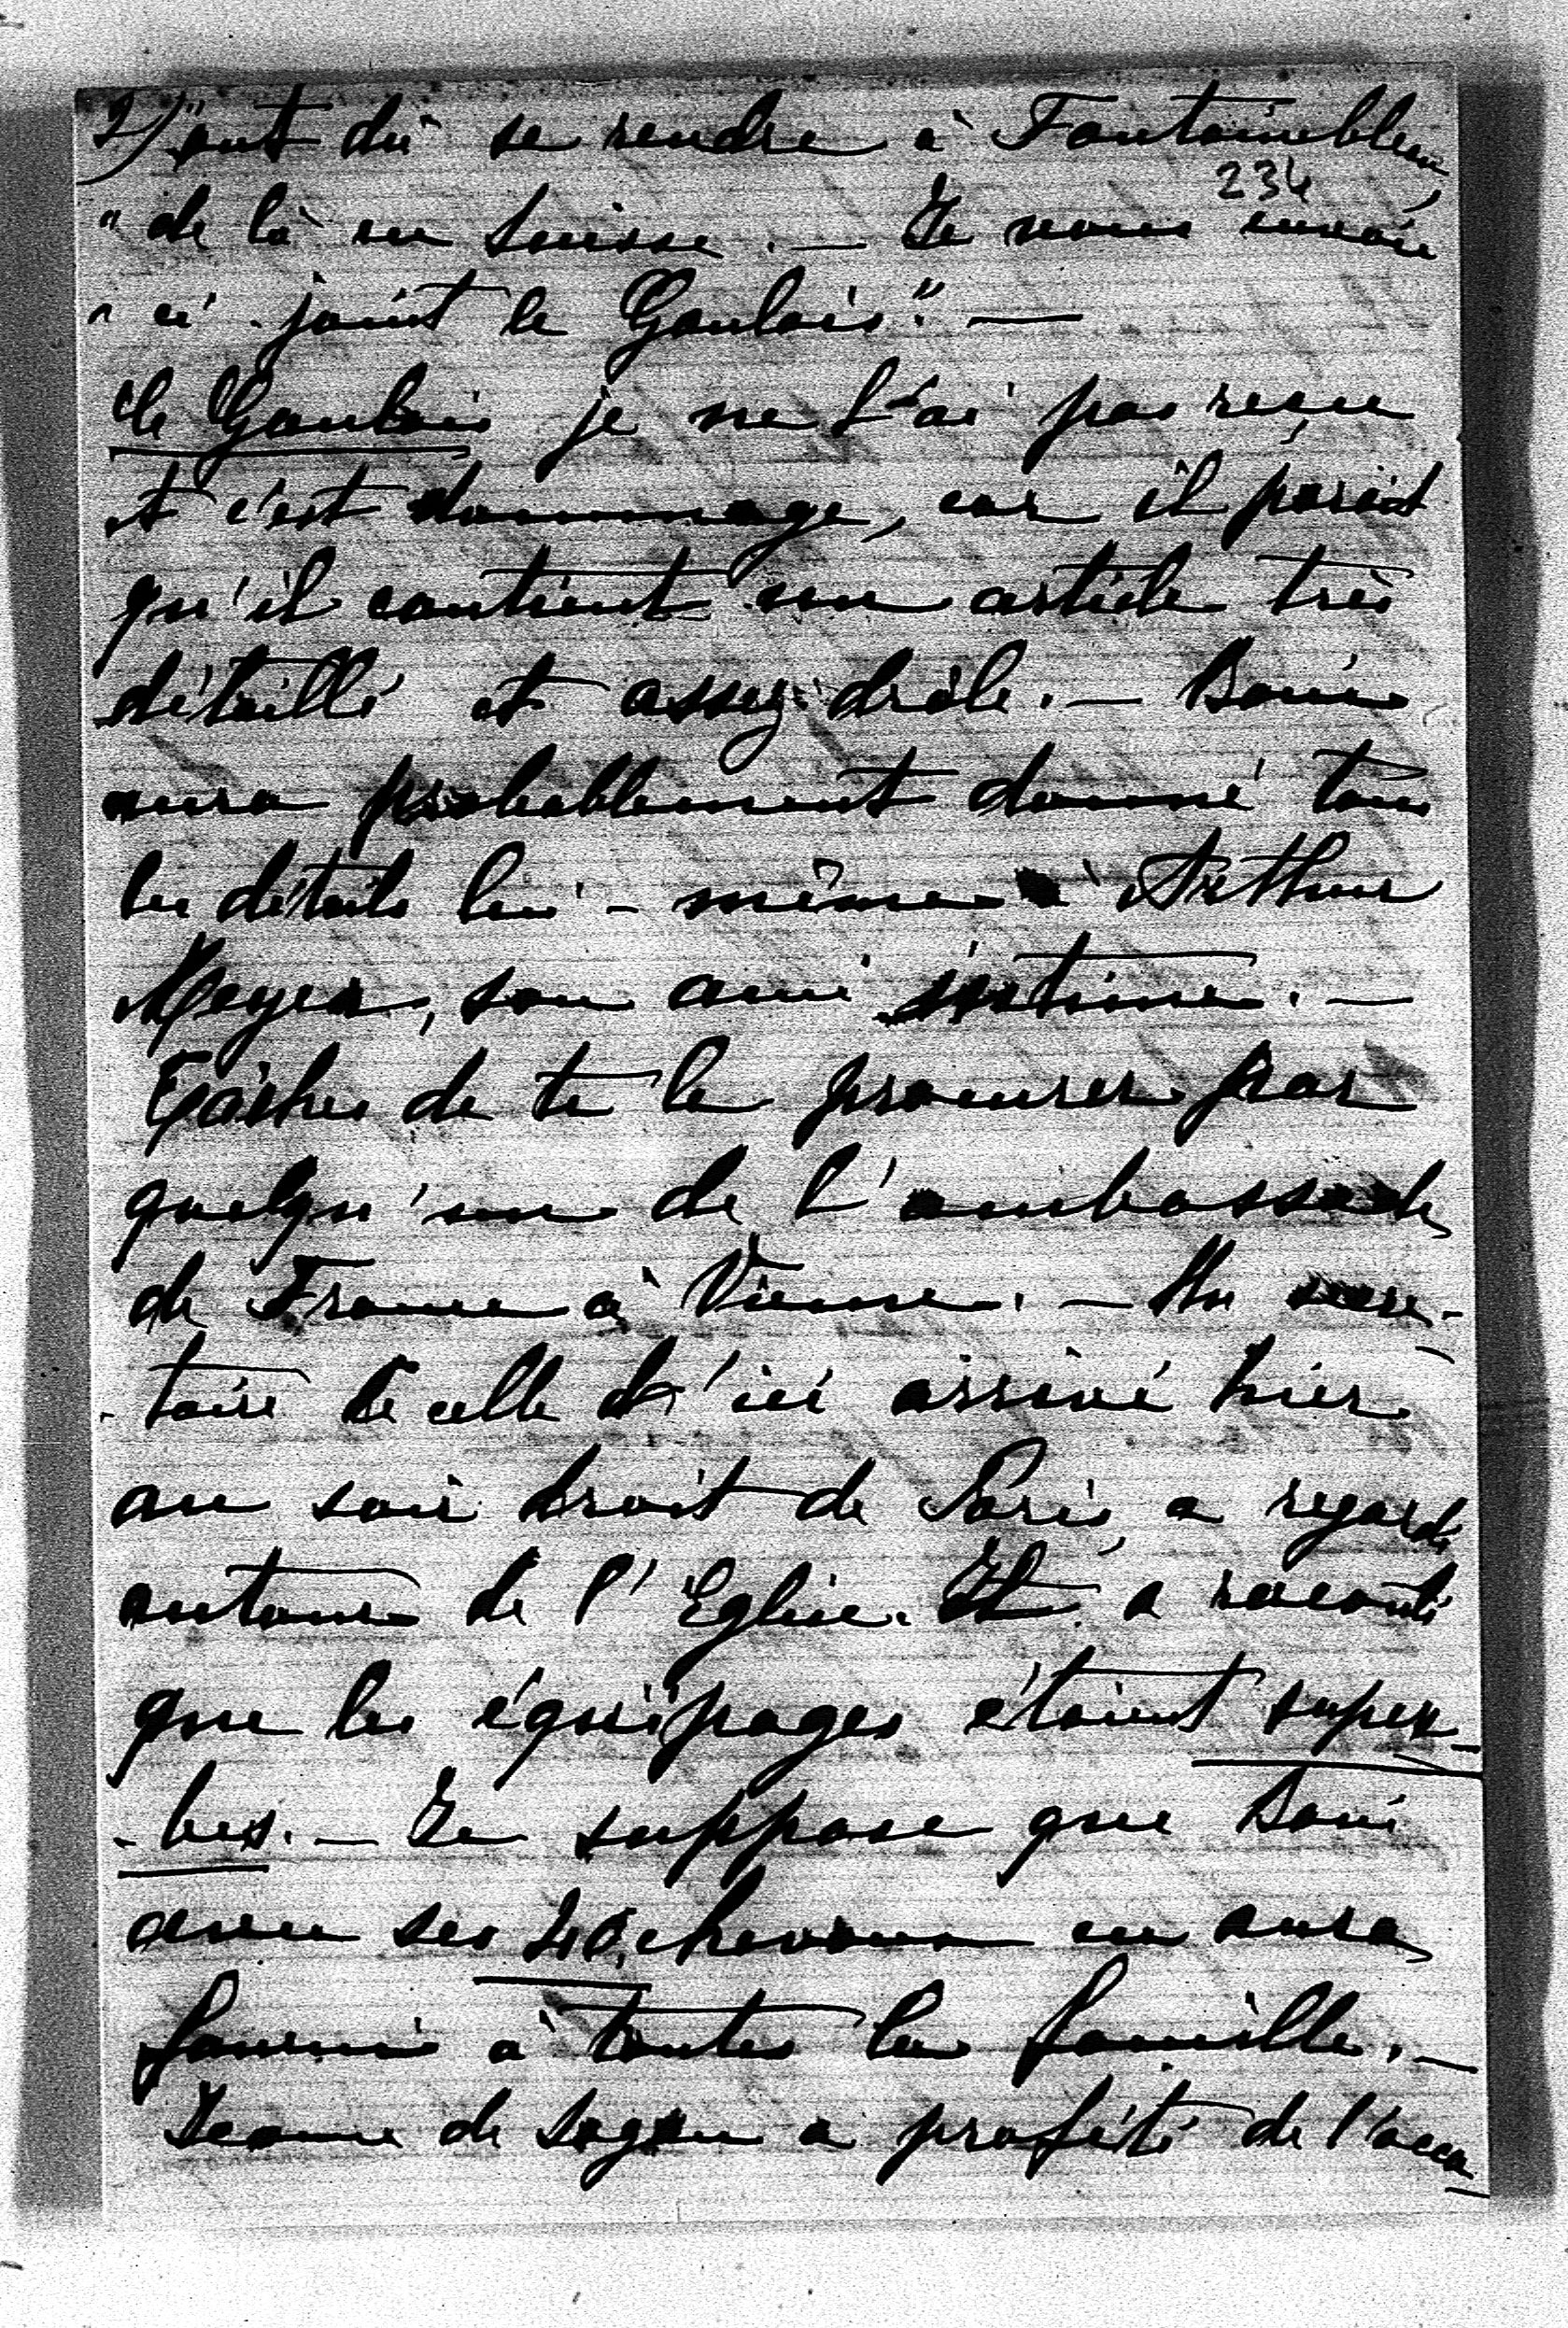 2) "ont dû se rendre à Fontainebleau,
234
"de là en Suisse. — Je vous envoie
"ci-joint le Gaulois". —
Le Gaulois je ne l'ai pas reçu
et c'est dommage, car il parait
qu'il contient un article très
détaillé et assez drôle. — Boni
aura probablement donné tous
les détails lui-même à Arthur
Meyer, son ami intime. —
Tâches de te le procurer par
quelqu'un de l'ambassade
de France à Vienne. — Un secré-
-taire de celle d'ici arrivé hier
au soir droit de Paris, a regardé
autour de l'Eglise. Il a raconté
que les équipages étaient super-
-bes. — Je suppose que Boni
avec ses 40 chevaux en aura
fourni à toute la famille. —
Jeanne de Sagan a profité de l'occa-